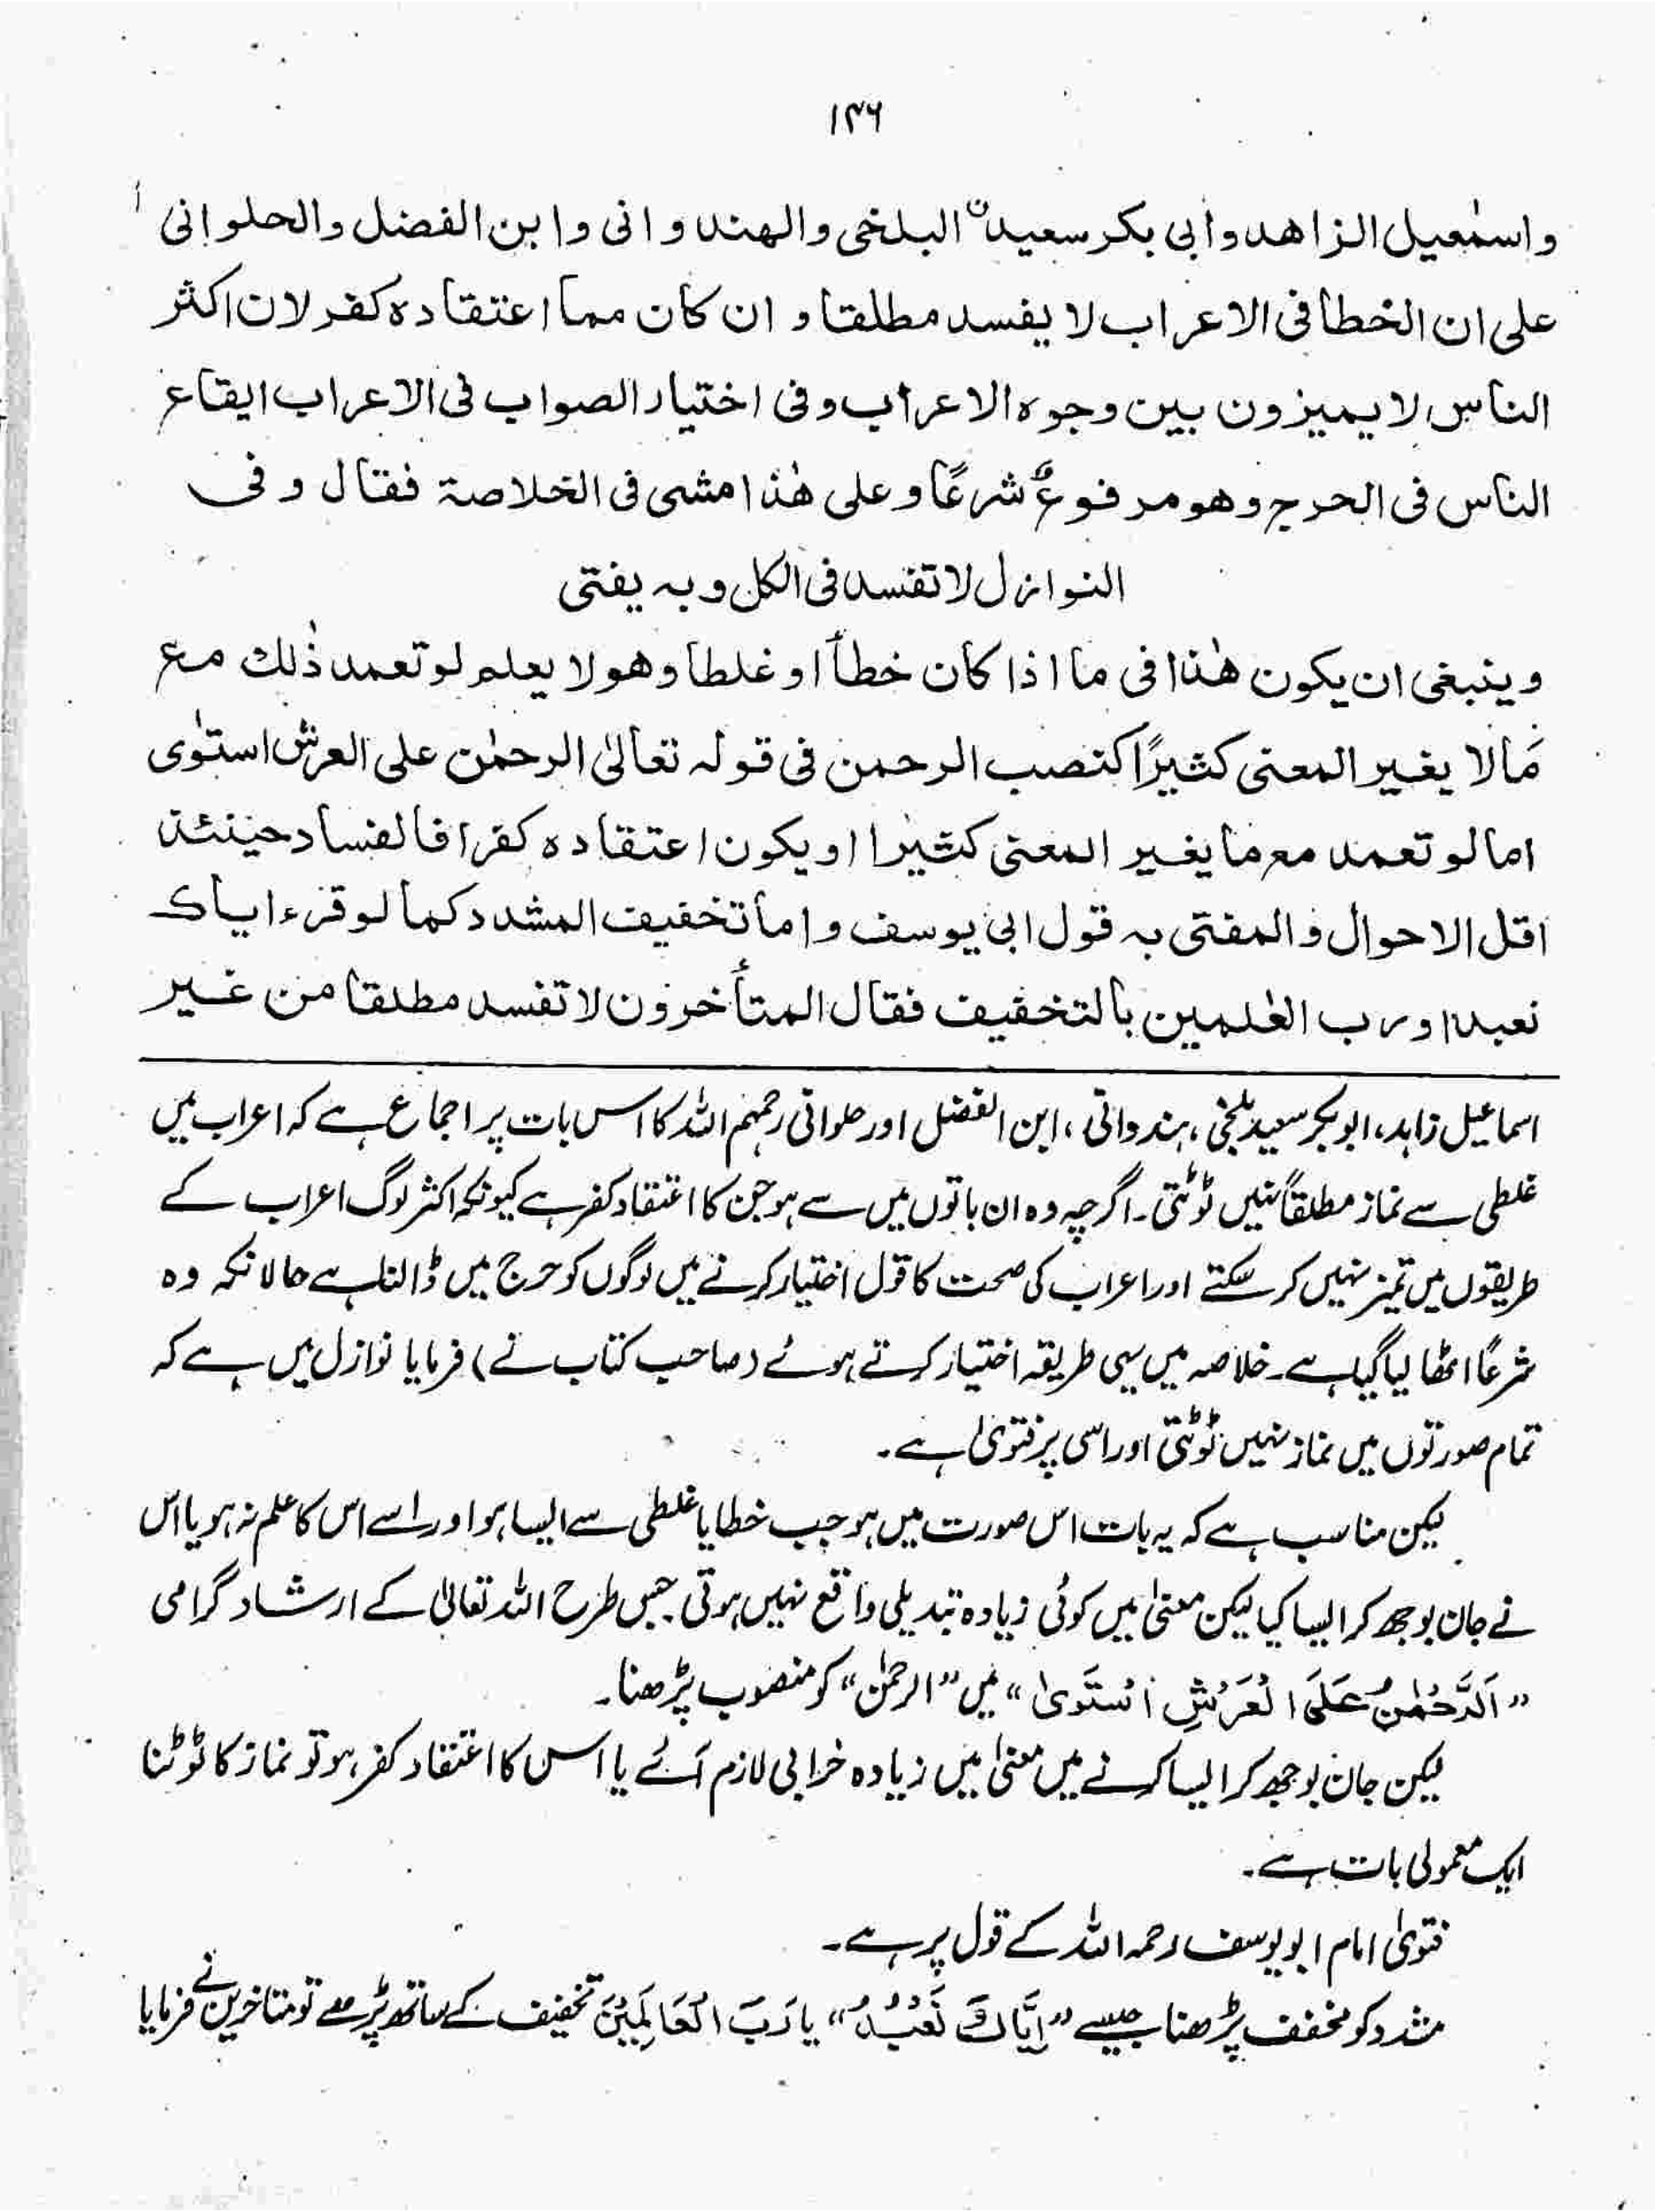 ۱۳۶
واسمٰعیل الزاھد وابی بکر سعید البلخی والھندوانی وابن الفضل والحلوانی
علی ان الخطأ فی الاعراب لا یفسد مطلقا و ان کان مما اعتقادہ کفر لان اکثر
الناس لا یمیزون بین وجوہ الاعراب وفی اختیار الصواب فی الاعراب ایقاع
الناس فی الحرج وھو مرفوعٌ شرعًا وعلی ھٰذا مشی فی الخلاصۃ فقال وفی
النوازل لا تفسد فی الکل وبہ یفتی
وینبغی ان یکون ھٰذا فی ما اذا کان خطأً او غلطا وھو لا یعلم لو تعمد ذٰلک مع
مَا لا یغیر المعنی کثیرًا کنصب الرحمن فی قولہ تعالیٰ الرحمٰن علی العرش استوٰی
اما لو تعمد مع ما یغیر المعنی کثیرا او یکون اعتقادہ کفرا فالفساد حینئذ
اقل الاحوال والمفتی بہ قول ابی یوسف واما تخفیف المشدد کما لو قرء ایاک
نعبد او رب العٰلمین بالتخفیف فقال المتأخرون لا تفسد مطلقا من غیر
اسماعیل زاہد، ابوبکر سعید بلخی، ہندوانی، ابن الفضل اور حلوانی رحمہم اللہ کا اس بات پر اجماع ہے کہ اعراب میں
غلطی سے نماز مطلقاً نہیں ٹوٹتی۔ اگرچہ وہ ان باتوں میں سے ہو جن کا اعتقاد کفر ہے کیونکہ اکثر لوگ اعراب کے
طریقوں میں تمیز نہیں کر سکتے اور اعراب کی صحت کا قول اختیار کرنے میں لوگوں کو حرج میں ڈالنا ہے حالانکہ وہ
شرعًا اٹھا لیا گیا ہے۔ خلاصہ میں یہی طریقہ اختیار کرتے ہوئے (صاحب کتاب نے) فرمایا نوازل میں ہے کہ
تمام صورتوں میں نماز نہیں ٹوٹتی اور اسی پر فتویٰ ہے۔
لیکن مناسب ہے کہ یہ بات اس صورت میں ہو جب خطا یا غلطی سے ایسا ہو اور اسے اس کا علم نہ ہو یا اس
نے جان بوجھ کر ایسا کیا لیکن معنیٰ میں کوئی زیادہ تبدیلی واقع نہیں ہوتی جس طرح اللہ تعالیٰ کے ارشاد گرامی
"اَلرَّحْمٰنُ عَلَی الْعَرْشِ اسْتَویٰ" میں "الرحمٰن" کو منصوب پڑھنا۔
لیکن جان بوجھ کر ایسا کرنے میں معنیٰ میں زیادہ خرابی لازم آئے یا اس کا اعتقاد کفر ہو تو نماز کا ٹوٹنا
ایک معمولی بات ہے۔
فتویٰ امام ابو یوسف رحمہ اللہ کے قول پر ہے۔
مشدد کو مخفف پڑھنا جیسے "اِیَّاكَ نَعْبُدُ" یا رَبِّ الْعَالَمِیْنَ تخفیف کے ساتھ پڑھے تو متاخرین نے فرمایا